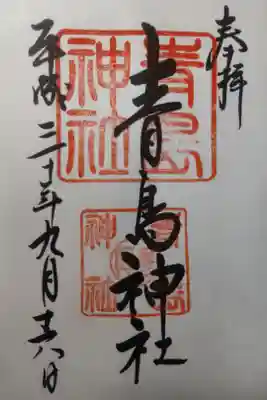 奉拝
青島神社
平成三十年九月十六日
青島
神社